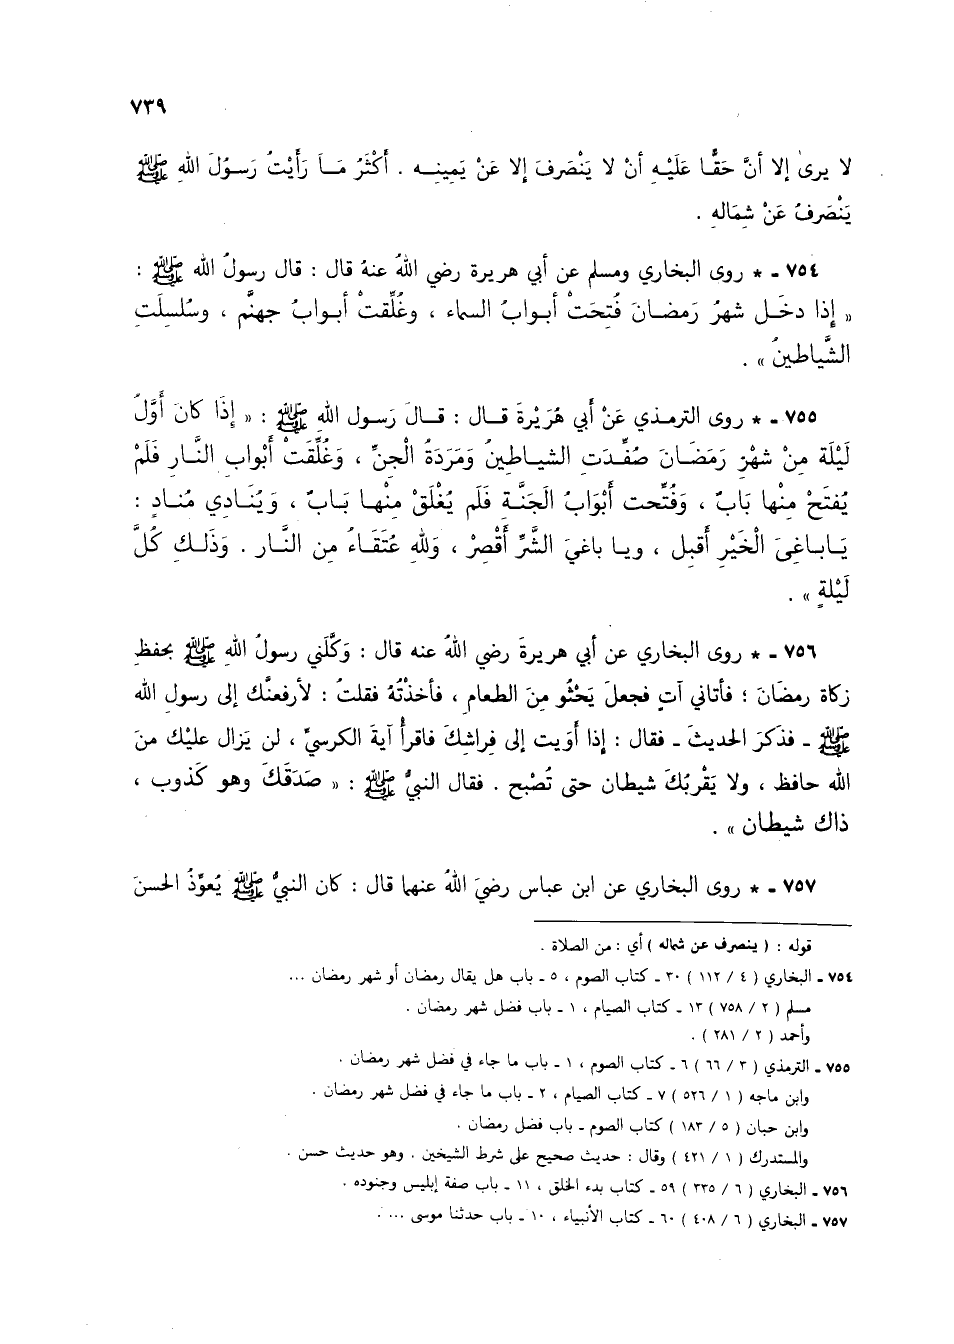 ٧٣٩
لا يرىٰ إلا أنَّ حَقًّا عَلَيْهِ أنْ لا يَنْصَرفَ إلا عَنْ يَمينِـه . أَكْثَرُ مَـا رَأَيْتُ رَسـولَ اللهِ ﷺ
يَنْصَرفُ عَنْ شِمَالهِ .
٧٥٤ ـ * روى البخاري ومسلم عن أبي هريرة رضي اللهُ عنهُ قال : قال رسولُ الله ﷺ :
« إذا دخَـل شهرُ رَمضـانَ فُتحَتْ أبـوابُ السماء ، وغُلِّقتْ أبـوابُ جهنَّم ، وسُلسِلَتِ
الشَّياطينُ » .
٧٥٥ ـ * روى الترمذي عَنْ أبي هُرَيْرةَ قـال : قـالَ رَسول اللهِ ﷺ : « إِذَا كانَ أَوَّلُ
لَيْلَة مِنْ شهْرِ رَمَضَـانَ صُفِّدَتِ الشيـاطينُ وَمَرَدَةُ الْجنِّ ، وَغُلِّقَتْ أَبْواب النَّـارِ فَلَمْ
يُفتَحْ مِنْها بَابٌ ، وَفُتِّحت أَبْوَابُ الجَنَّـةِ فَلَم يُغْلَقْ مِنْهـا بَـابٌ ، وَيُنَـادِي مُنـادٍ :
يَـابـاغِيَ الْخَيْرِ أقبل ، ويـا باغيَ الشَّرِّ أَقْصِرْ ، وَلِله عُتَقَـاءُ مِنِ النَّـار . وَذَلـكِ كُلَّ
لَيْلةٍ » .
٧٥٦ ـ * روى البخاري عن أبي هريرةَ رضي اللهُ عنه قال : وَكَّلَني رسولُ اللهِ ﷺ بحفظِ
زكاة رمضَانَ ؛ فأتاني آتٍ فجعلَ يَحْثُو مِنَ الطعام ، فأخذْتُهُ فقلتُ : لأرفعنَّك إلى رسول الله
ﷺ ـ فذكرَ الحديثَ ـ فقال : إذا أوَيت إلى فِراشِكَ فاقرأْ آيةَ الكرسيِّ ، لن يَزال عليْك منَ
الله حافظ ، ولا يَقْربُكَ شيطان حتى تُصْبح . فقال النبيُّ ﷺ : « صَدَقَكَ وهو كَذوب ،
ذاك شيطان » .
٧٥٧ ـ * روى البخاري عن ابن عباس رضيَ اللهُ عنهما قال : كان النبيُّ ﷺ يُعوِّذُ الحسنَ
قوله : ( ينصرف عن شماله ) أي : من الصلاة .
٧٥٤ ـ البخاري ( ٤ / ١١٢ ) ٣٠ ـ كتاب الصوم ، ٥ ـ باب هل يقال رمضان أو شهر رمضان ...
مسلم ( ٢ / ٧٥٨ ) ١٣ ـ كتاب الصيام ، ١ ـ باب فضل شهر رمضان .
وأحمد ( ٢ / ٢٨١ ) .
٧٥٥ ـ الترمذي ( ٣ / ٦٦ ) ٦ ـ كتاب الصوم ، ١ ـ باب ما جاء في فضل شهر رمضان .
وابن ماجه ( ١ / ٥٢٦ ) ٧ ـ كتاب الصيام ، ٢ ـ باب ما جاء في فضل شهر رمضان .
وابن حبان ( ٥ / ١٨٣ ) كتاب الصوم ـ باب فضل رمضان .
والمستدرك ( ١ / ٤٢١ ) وقال : حديث صحيح على شرط الشيخين . وهو حديث حسن .
٧٥٦ ـ البخاري ( ٦ / ٣٣٥ ) ٥٩ ـ كتاب بدء الخلق ، ١١ ـ باب صفة إبليس وجنوده .
٧٥٧ ـ البخاري ( ٦ / ٤٠٨ ) ٦٠ ـ كتاب الأنبياء ، ١٠ ـ باب حدثنا موسى ... .